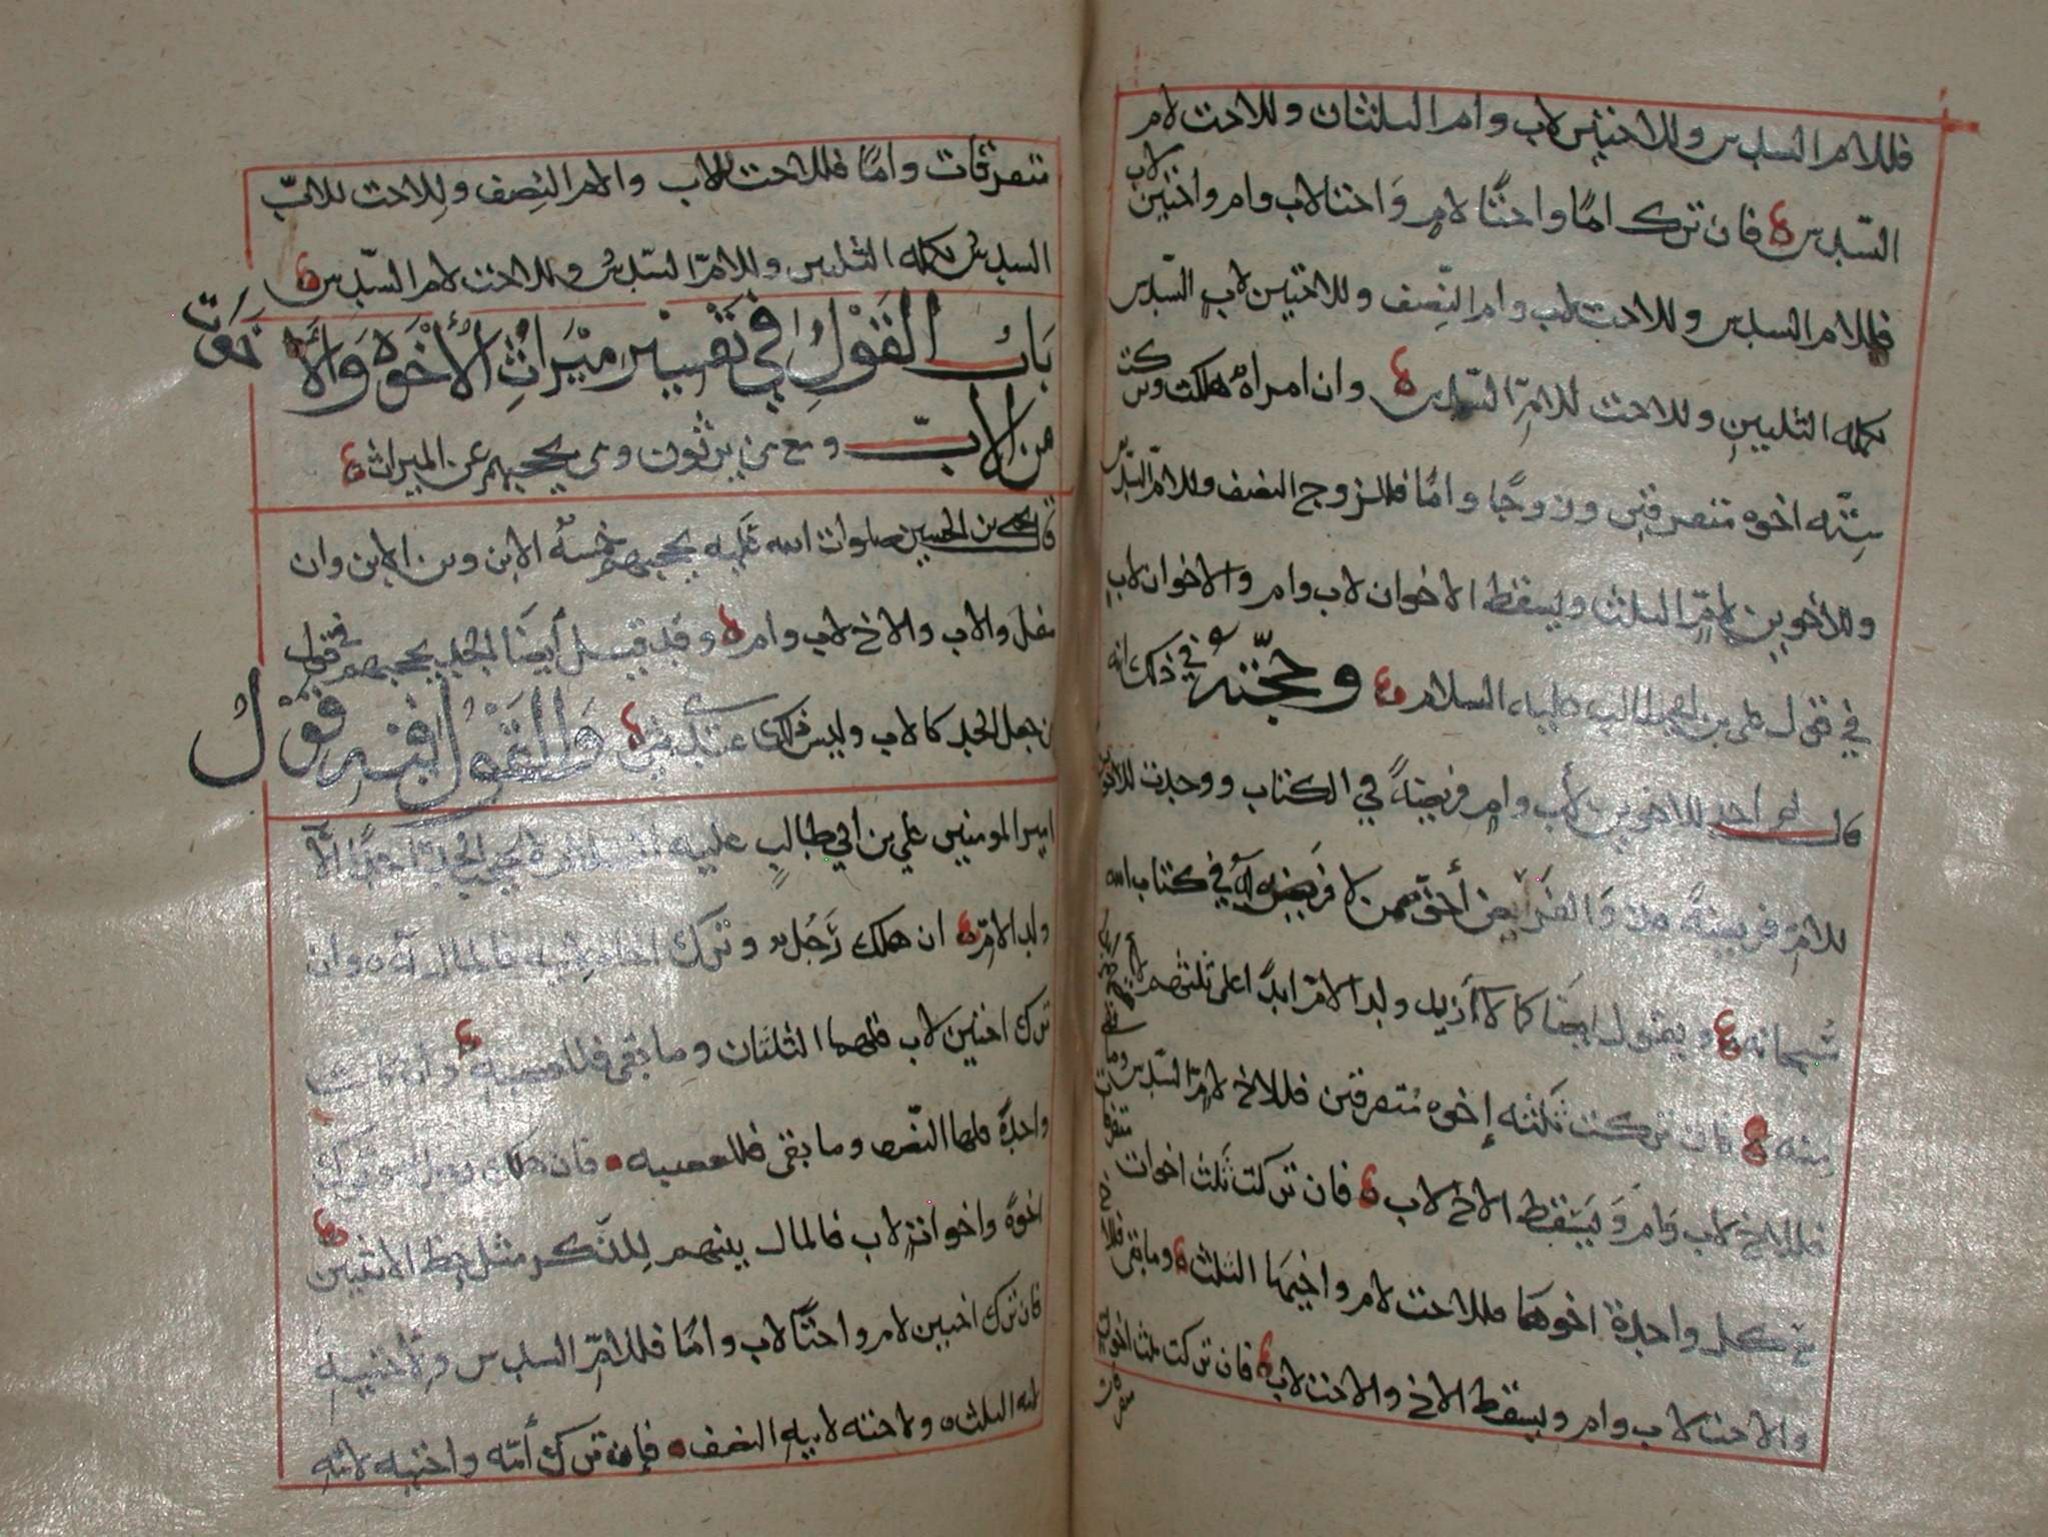 فللام السدس وللاختين لاب وام الثلثان وللاخت لام
السدس فان ترك اما واختا لام واختا لاب وام واختين لاب
فللام السدس وللاخت لاب وام النصف وللاختين لاب السدس
تكمله الثلثين وللاخت للام السدس وان امراة هلكت وتركت
ستة اخوه متفرقين وزوجا واما فللزوج النصف وللام السدس
وللاخوين لام الثلث ويسقط الاخوان لاب وام والاخوان لاب
في قول علي بن ابي طالب عليه السلام وحجته في ذلك انه
قال لم اجد للاخوين لأب وام فريضة في الكتاب ووجدت للاخوين
للام فريضة من والفرايض أحق ممن لا فريضه له في كتاب الله
سبحانه ويقول ايضا كما لا ازيد ولد الام ابدا على ثلثهم لا
منه فان تركت ثلثه إخوه متفرقين فللاخ لام السدس وما
فللاخ لاب وام ويسقط الاخ لاب فان تركت ثلث اخوات متفرقات
مع كل واحدة اخوها فللاخت لام واخيها الثلث وما بقى فللاخ
والاخت لاب وام ويسقط الاخ والاخت لاب فان تركت ثلث اخوات
متفرقات
متفرقات واما فللاخت للاب والام النصف وللاخت للاب
السدس تكمله الثلثين وللام السدس وللاخت لام السدس
باب القول في تفسير ميراث الأخوه والأخوات
من الاب ومع من يرثون ومن يحجبهم عن الميراث
قال يحيى بن الحسين صلوات الله عليه يحجبهم خمسة الابن وبن الابن وان
سفل والاب والاخ لاب وام وقد قيل أيضا الجد يحجبهم في قول
من جعل الجد كالاب وليس ذلك عندي والقول فيه قول
امير المومنين علي بن ابي طالب عليه السلام لا يحجب الجد احدا الا
ولد الام ان هلك رجل وترك اخاه لابيه فالمال له وان
ترك اختين لاب فلهما الثلثان وما بقى فللعصبه وان كانت
واحدة فلها النصف وما بقى فللعصبه فان هلك رجل وترك
اخوة واخوات لاب فالمال بينهم للذكر مثل حظ الانثيين
فان ترك اختين لام واختا لاب واما فللام السدس ولأختيه
لامه الثلث ولاخته لابيه النصف فإن ترك أمه واختيه لامه